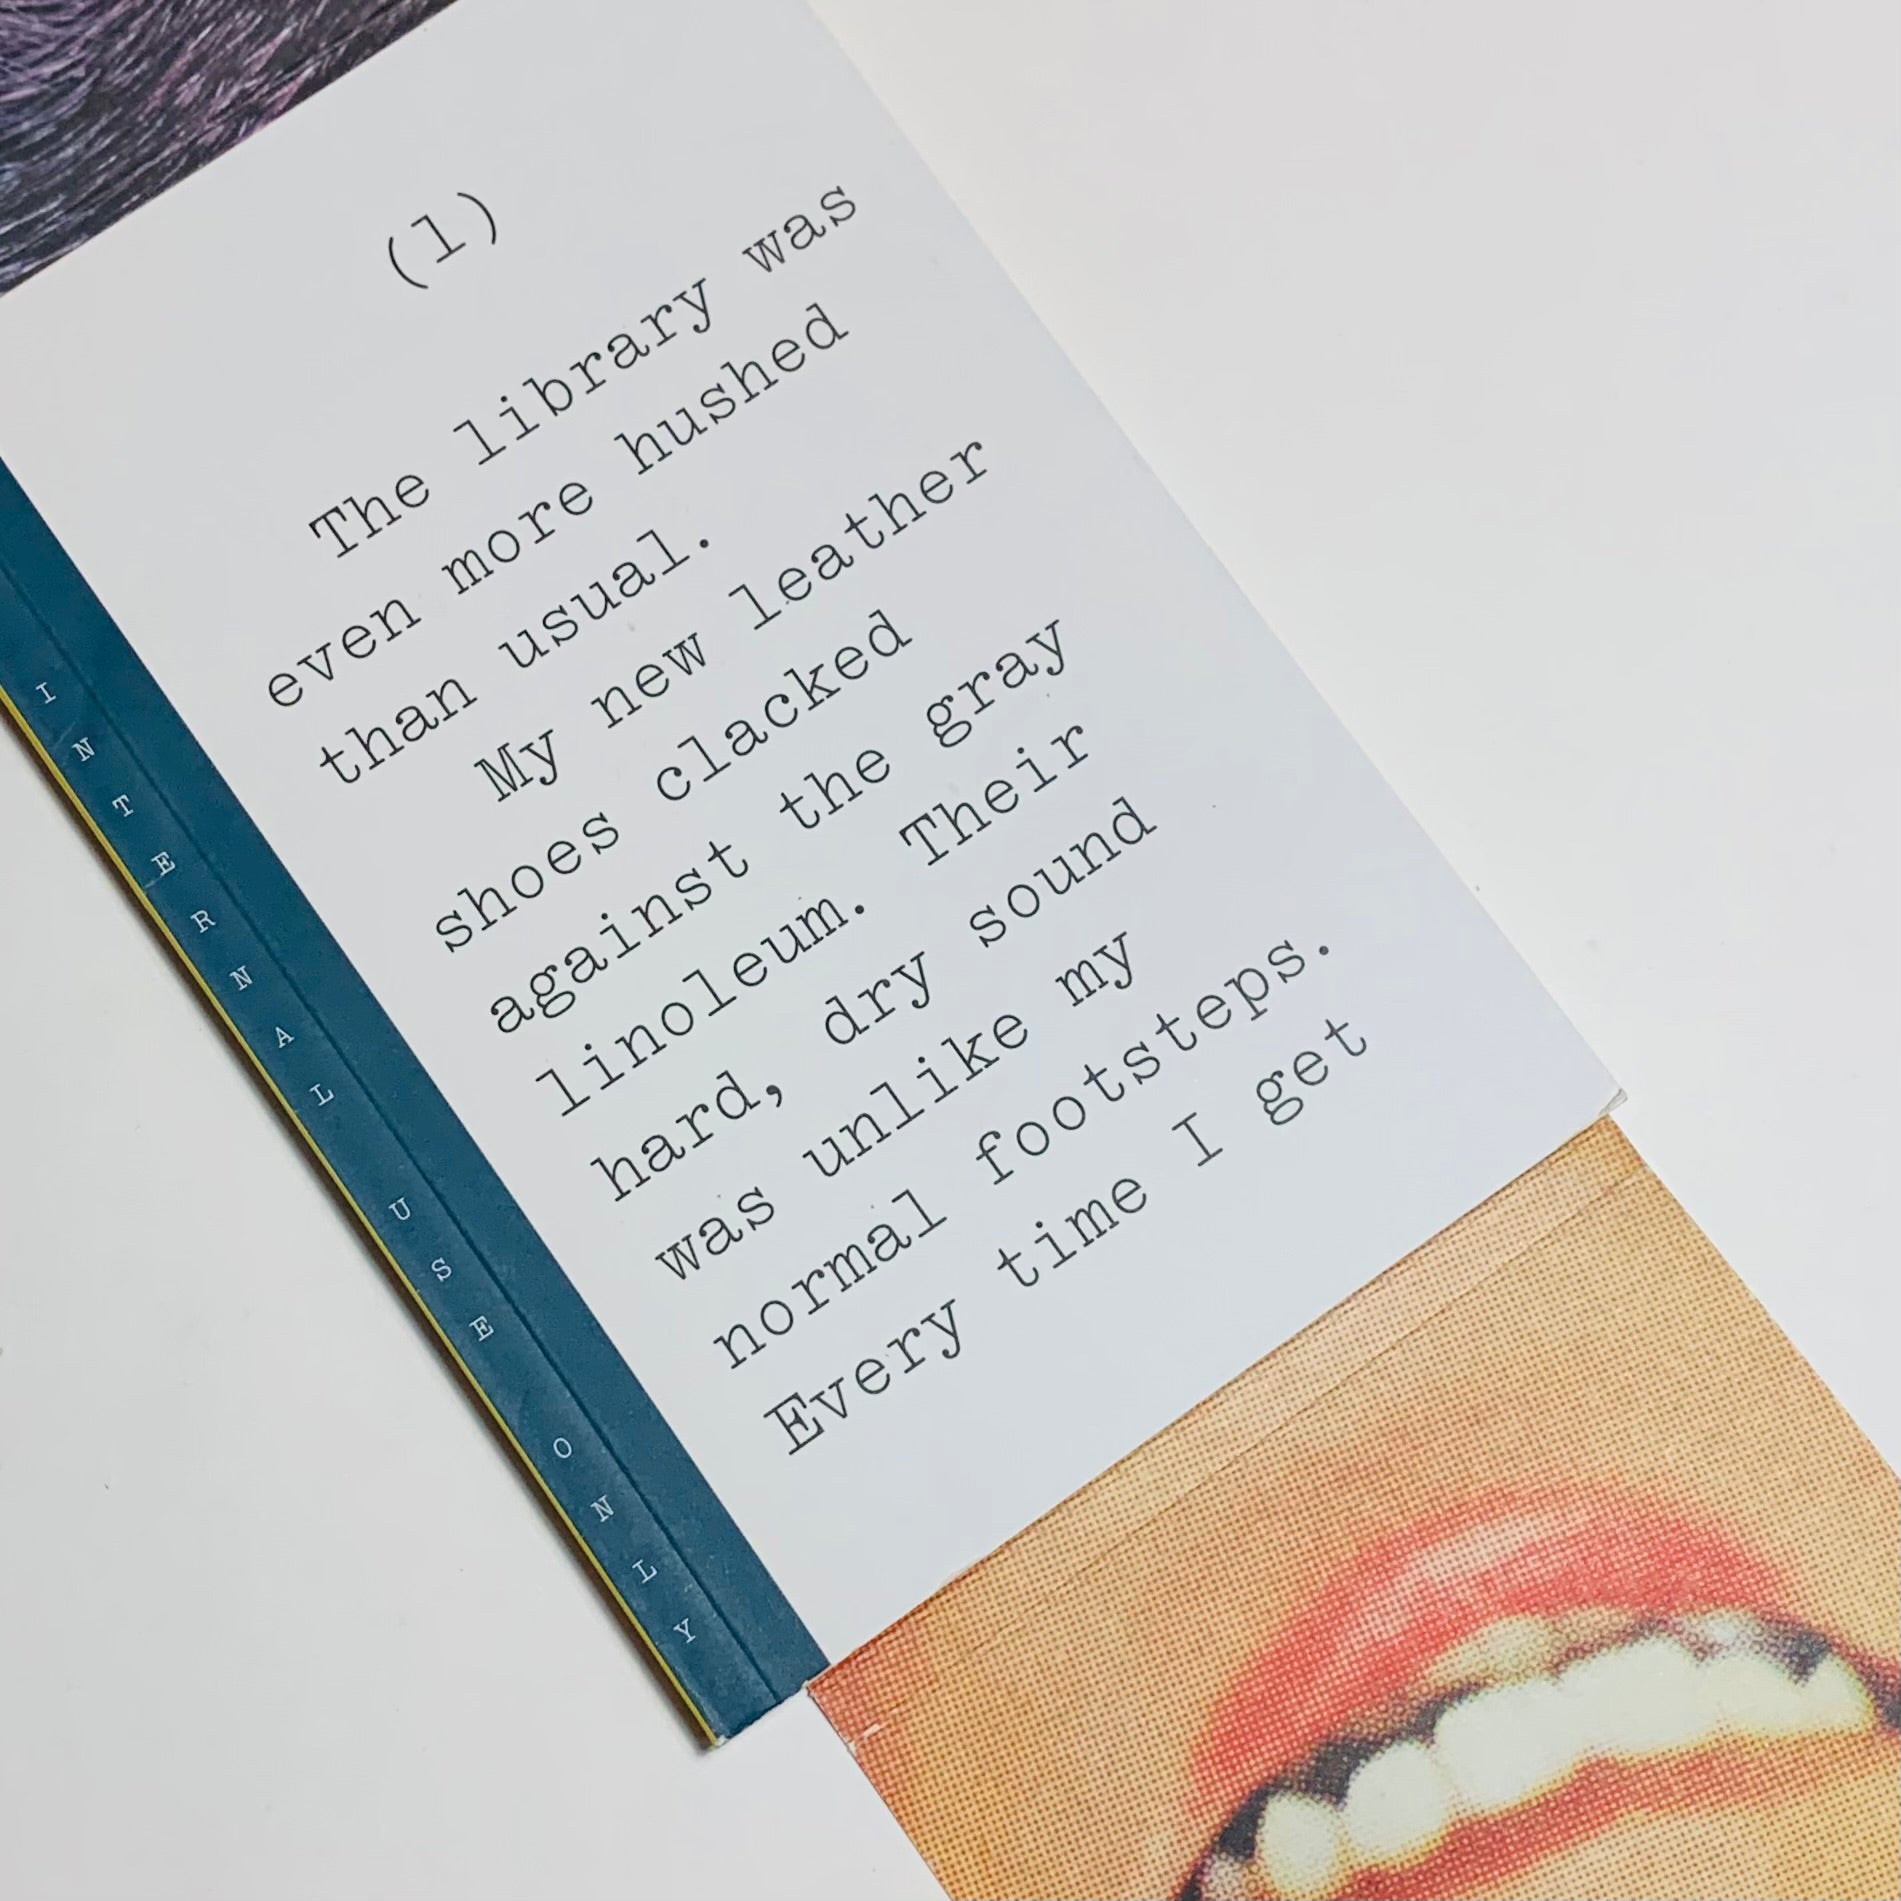 (1)
The library was
even more hushed
than usual.
My new leather
shoes clacked
against the gray
linoleum. Their
hard, dry sound
was unlike my
normal footsteps.
Every time I get
INTERNAL USE ONLY